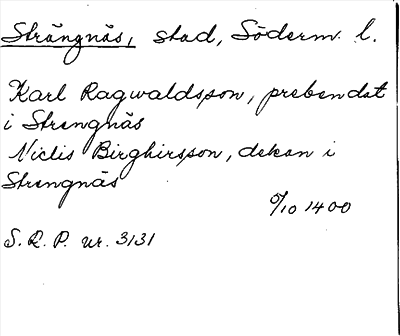 Strängnäs, stad, Söderm. l.
Karl Ragwaldsson, prebendat
i Strengnäs
Niclis Birghirsson, dekan i
Strengnäs
9/10 1400
S. R. P. nr. 3131